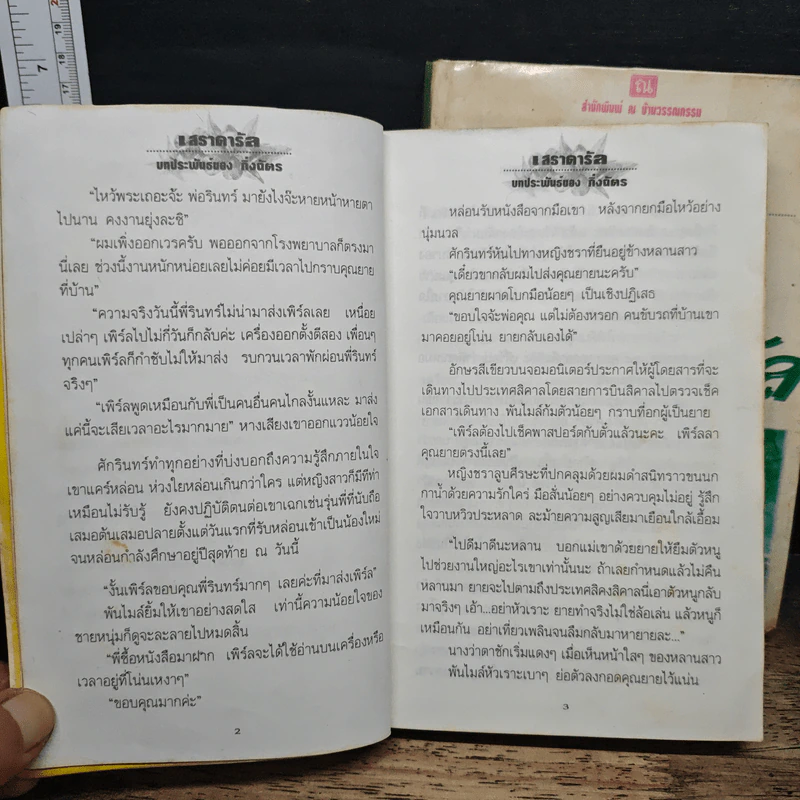 7
17
18
19
20
ณ
สำนักพิมพ์ ณ บ้านวรรณกรรม
เสราดารัล
บทประพันธ์ของ กิ่งฉัตร
“ไหว้พระเถอะจ้ะ พ่อรินทร์ มายังไงจ๊ะหายหน้าหายตา
ไปนาน คงงานยุ่งละซิ”
“ผมเพิ่งออกเวรครับ พอออกจากโรงพยาบาลก็ตรงมา
นี่เลย ช่วงนี้งานหนักหน่อยเลยไม่ค่อยมีเวลาไปกราบคุณยาย
ที่บ้าน”
“ความจริงวันนี้พี่รินทร์ไม่น่ามาส่งเพิร์ลเลย เหนื่อย
เปล่าๆ เพิร์ลไปไม่กี่วันก็กลับค่ะ เครื่องออกตั้งตีสอง เพื่อนๆ
ทุกคนเพิร์ลก็กำชับไม่ให้มาส่ง รบกวนเวลาพักผ่อนพี่รินทร์
จริงๆ”
“เพิร์ลพูดเหมือนกับพี่เป็นคนอื่นคนไกลงั้นแหละ มาส่ง
แค่นี้จะเสียเวลาอะไรมากมาย” หางเสียงเขาออกแววน้อยใจ
ศักรินทร์ทำทุกอย่างที่บ่งบอกถึงความรู้สึกภายในใจ
เขาแคร์หล่อน ห่วงใยหล่อนเกินกว่าใคร แต่หญิงสาวก็มีทีท่า
เหมือนไม่รับรู้ ยังคงปฏิบัติตนต่อเขาเฉกเช่นรุ่นพี่ที่นับถือ
เสมอต้นเสมอปลายตั้งแต่วันแรกที่รับหล่อนเข้าเป็นน้องใหม่
จนหล่อนกำลังศึกษาอยู่ปีสุดท้าย ณ วันนี้
“งั้นเพิร์ลขอบคุณพี่รินทร์มากๆ เลยค่ะที่มาส่งเพิร์ล”
พันไมล์ยิ้มให้เขาอย่างสดใส เท่านี้ความน้อยใจของ
ชายหนุ่มก็ดูจะละลายไปหมดสิ้น
“พี่ซื้อหนังสือมาฝาก เพิร์ลจะได้ใช้อ่านบนเครื่องหรือ
เวลาอยู่ที่โน่นเหงาๆ”
“ขอบคุณมากค่ะ”
2
เสราดารัล
บทประพันธ์ของ กิ่งฉัตร
หล่อนรับหนังสือจากมือเขา หลังจากยกมือไหว้อย่าง
นุ่มนวล
ศักรินทร์หันไปทางหญิงชราที่ยืนอยู่ข้างหลานสาว
“เดี๋ยวขากลับผมไปส่งคุณยายนะครับ”
คุณยายผาดโบกมือน้อยๆ เป็นเชิงปฏิเสธ
“ขอบใจจ้ะพ่อคุณ แต่ไม่ต้องหรอก คนขับรถที่บ้านเขา
มาคอยอยู่โน่น ยายกลับเองได้”
อักษรสีเขียวบนจอมอนิเตอร์ประกาศให้ผู้โดยสารที่จะ
เดินทางไปประเทศสิคาลโดยสายการบินสิคาลไปตรวจเช็ค
เอกสารเดินทาง พันไมล์ก้มตัวน้อยๆ กราบที่อกผู้เป็นยาย
“เพิร์ลต้องไปเช็คพาสปอร์ตกับตั๋วแล้วนะคะ เพิร์ลลา
คุณยายตรงนี้เลย”
หญิงชราลูบศีรษะที่ปกคลุมด้วยผมดำสนิทราวขนนก
กาน้ำด้วยความรักใคร่ มือสั่นน้อยๆ อย่างควบคุมไม่อยู่ รู้สึก
ใจวาบหวิวประหลาด ละม้ายความสูญเสียมาเยือนใกล้เอื้อม
“ไปดีมาดีนะหลาน บอกแม่เขาด้วยยายให้ยืมตัวหนู
ไปช่วยงานใหญ่อะไรเขาเท่านั้นนะ ถ้าเลยกำหนดแล้วไม่คืน
หลานมา ยายจะไปตามถึงประเทศสิคงสิคาลนี่เอาตัวหนูกลับ
มาจริงๆ เอ้า...อย่าหัวเราะ ยายทำจริงไม่ใช่ล้อเล่น แล้วหนูก็
เหมือนกัน อย่าเที่ยวเพลินจนลืมกลับมาหายายละ...”
นางว่าตาชักเริ่มแดงๆ เมื่อเห็นหน้าใสๆ ของหลานสาว
พันไมล์หัวเราะเบาๆ ย่อตัวลงกอดคุณยายไว้แน่น
3